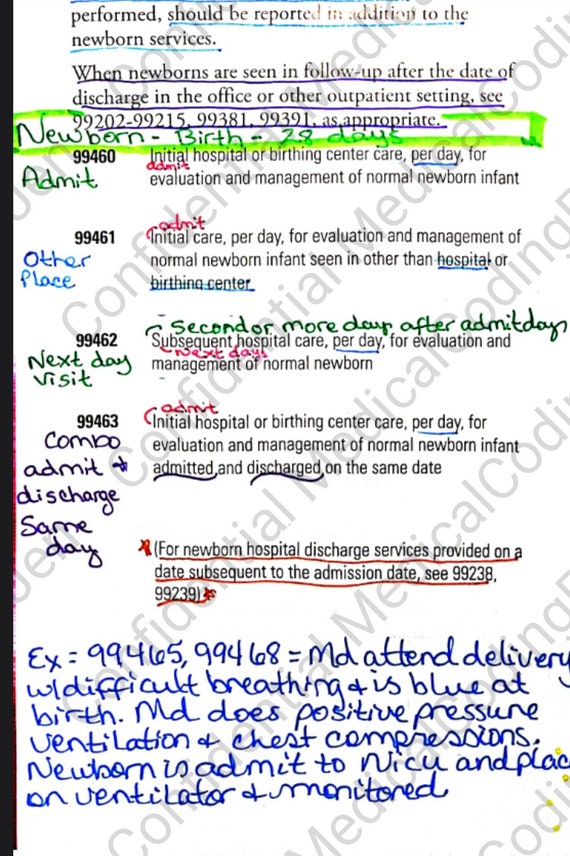 performed, should be reported in addition to the
newborn services.
When newborns are seen in follow-up after the date of
discharge in the office or other outpatient setting, see
99202-99215, 99381, 99391, as appropriate.
Newborn - Birth - 28 days
99460 Initial hospital or birthing center care, per day, for
admit
Admit evaluation and management of normal newborn infant
admit
99461 Initial care, per day, for evaluation and management of
Other normal newborn infant seen in other than hospital or
Place birthing center
Second or more days after admit days
99462 Subsequent hospital care, per day, for evaluation and
Next days
Next day management of normal newborn
visit
admit
99463 Initial hospital or birthing center care, per day, for
Combo evaluation and management of normal newborn infant
admit + admitted and discharged on the same date
discharge
Same
day (For newborn hospital discharge services provided on a
date subsequent to the admission date, see 99238,
99239)
Ex = 99465, 99468 = Md attend delivery
w/difficult breathing + is blue at
birth. Md does positive pressure
ventilation + chest compressions.
Newborn is admit to Nicu and plac
on ventilator + monitored
Confidential MedicalCoding